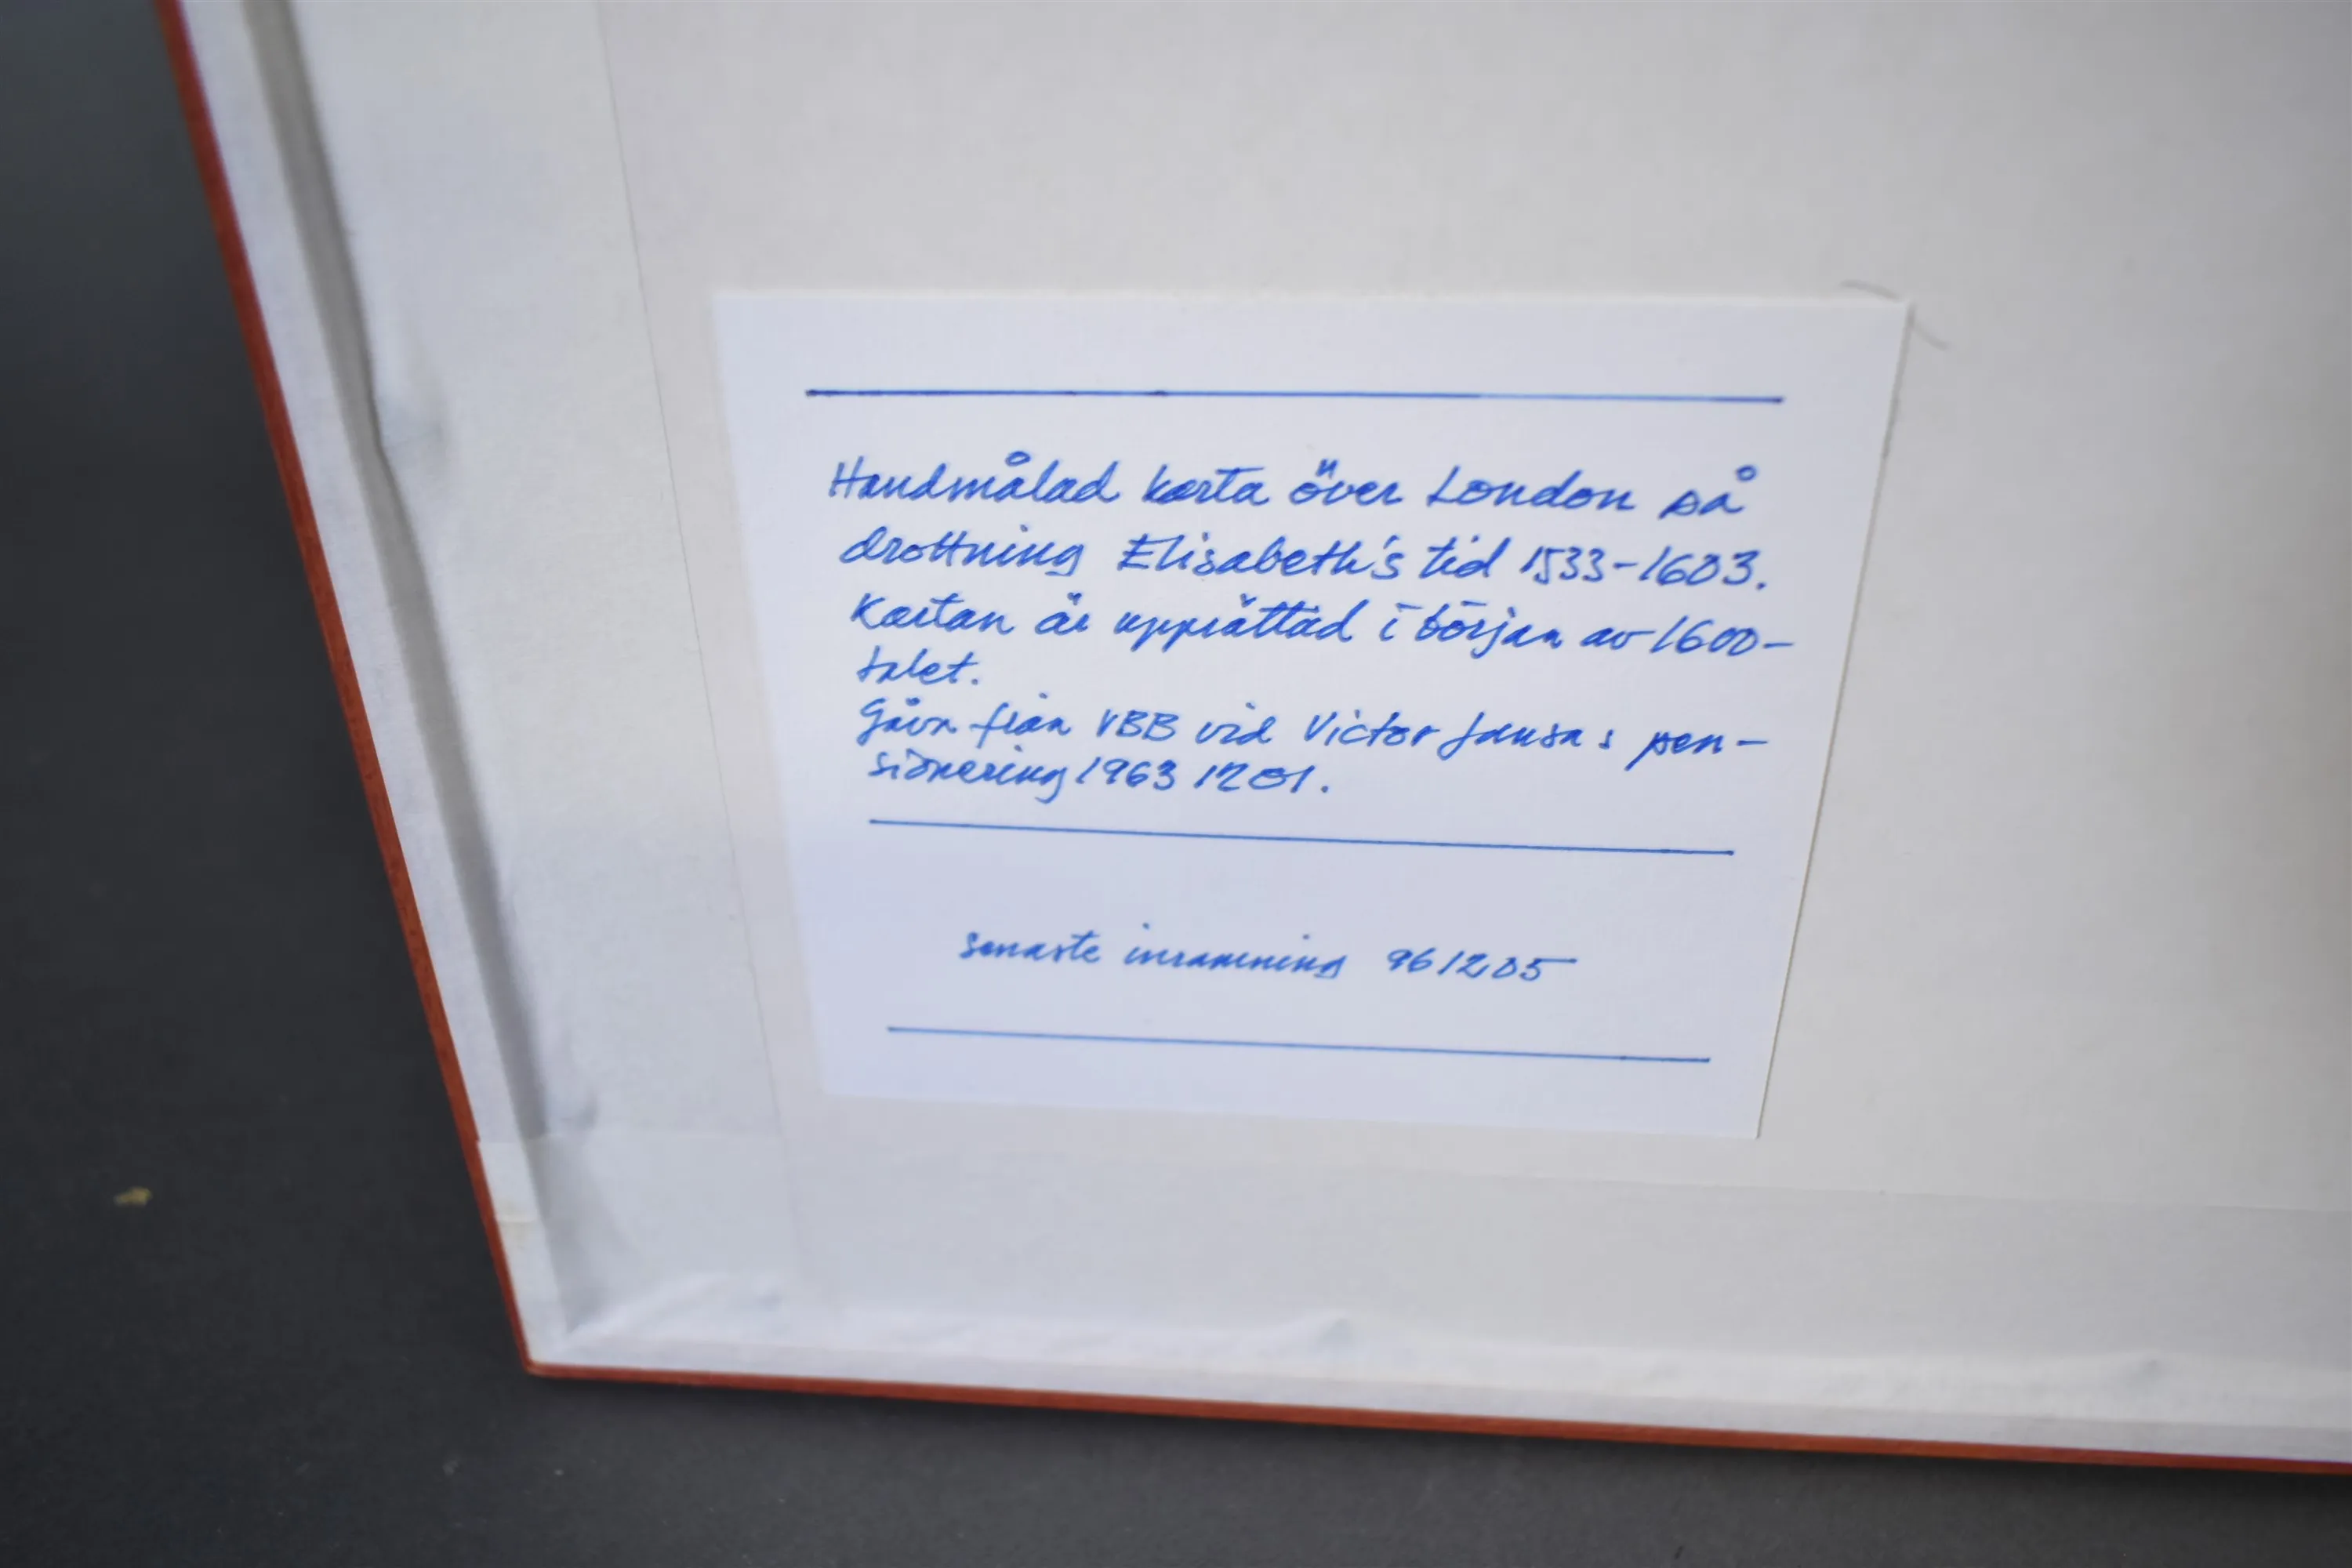 Handmålad karta över London på
drottning Elisabeth's tid 1533-1603.
Kartan är upprättad i början av 1600-
talet.
Gåva från VBB vid Victor Jansa s pen-
sionering 1963 1201.
senaste inramning 961205